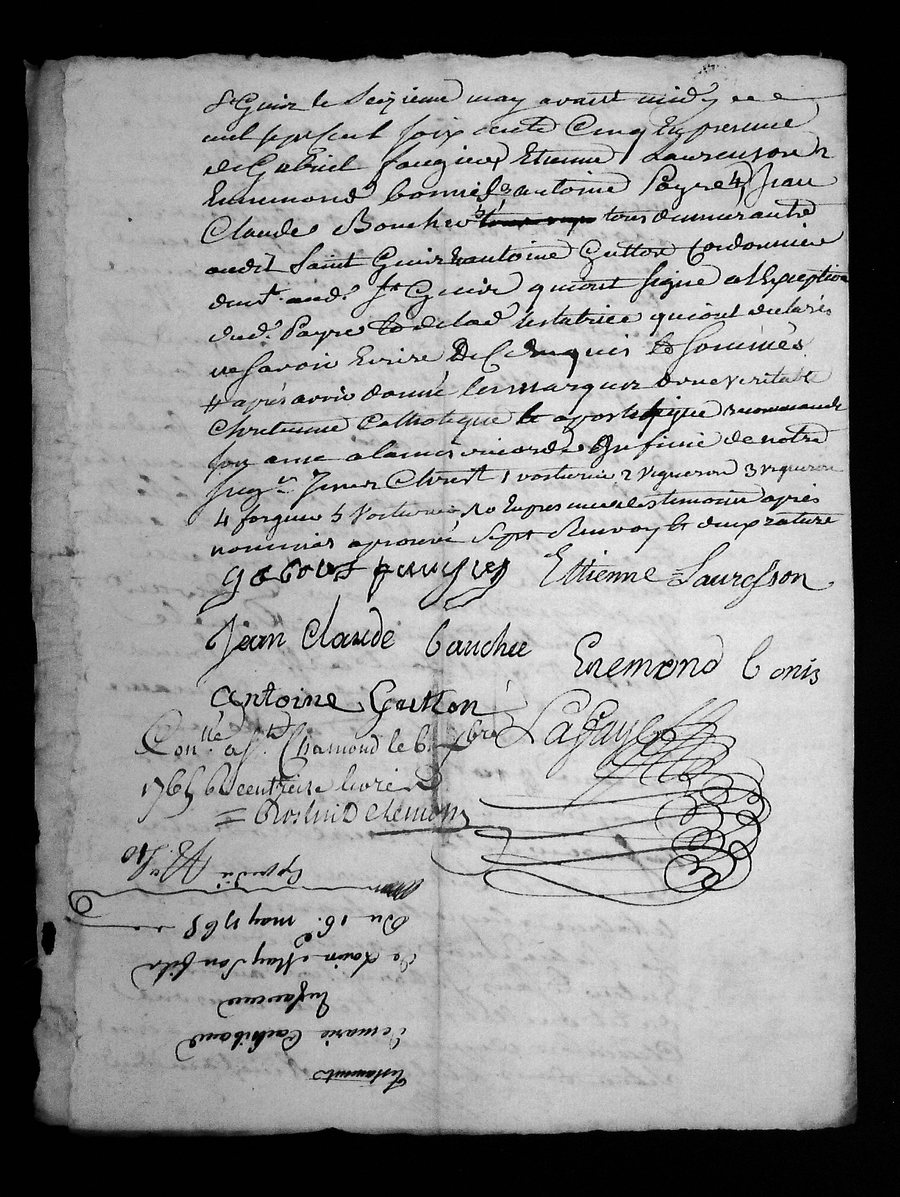 St Genis le Seizieme may avant midy
mil sept cent soixante Cinq En presence
de Gabriel faugier Etienne 1 Laurenson 2
Ennemond bonnis 3 antoine Payre 4 Jean
Claude Boucher 5 tous demeurants
audit Saint Genis & antoine Gutton Cordonnier
dud. St Genis qui ont signé a l'Exception
dud. Payre & de lad. testatrice qui ont declarés
ne savoir Ecrire De Ce Enquis & sommés
& après avoir donné les marques d'une veritable
Chretienne Catholique & apostolique recommandé
son ame a la misericorde infinie de notre
Seig.r Jesus Christ 1 voiturier 2 vigneron 3 vigneron
4 forgeur 5 voiturier En presence des temoins après
nommés aprouvé Sept Renvoy & deux rature
Etienne Laurensson
Jean Claude bauche Enemond bonis
antoine Gutton
Con.lé a St. Chamond le
1765 livre
Testament
De marie
En faveur
De May Son fils
Du 16.e may 1765
Expedié